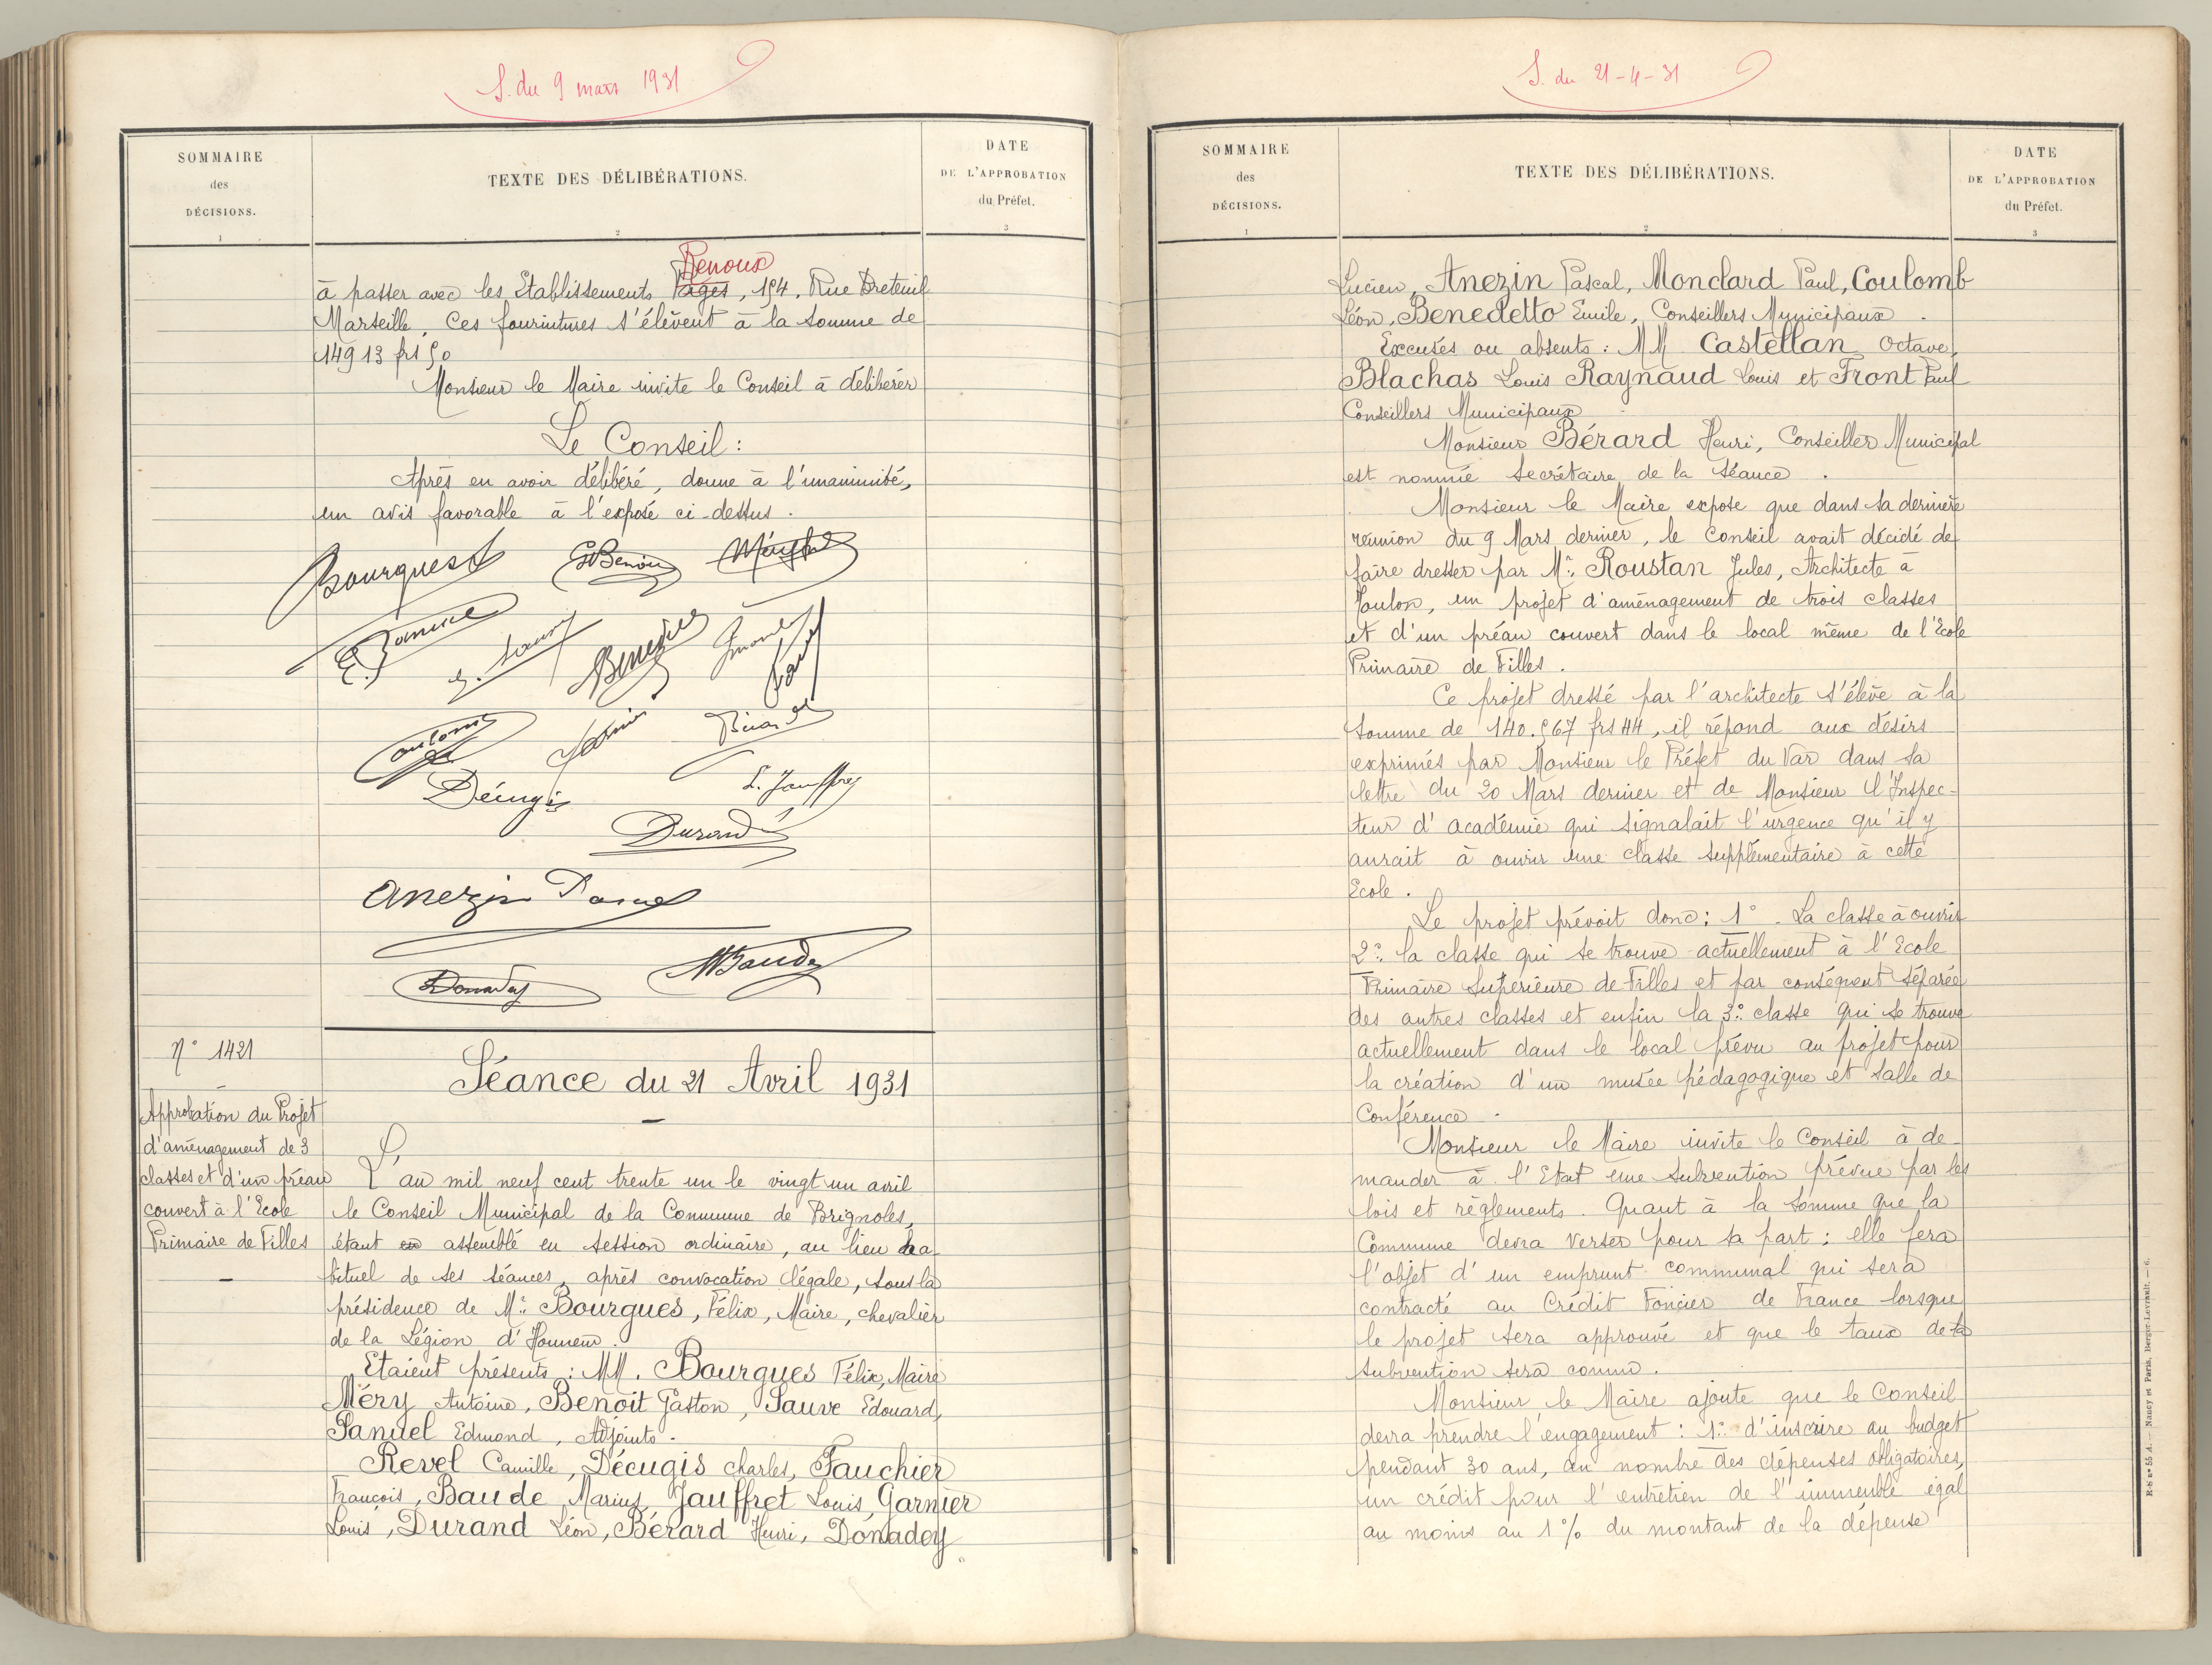 S. du 9 mars 1931
SOMMAIRE
des
DÉCISIONS.
1
TEXTE DES DÉLIBÉRATIONS.
2
DATE
DE L'APPROBATION
du Préfet.
3
Renoux
à passer avec les Etablissements Pages, 154, Rue Breteuil
Marseille, Ces fournitures s'élèvent à la somme de
14913 frs 50
Monsieur le Maire invite le Conseil à délibérer
Le Conseil:
Après en avoir délibéré, donne à l'unanimité,
un avis favorable à l'exposé ci-dessus.
Bourgues GBenoit
Décugis L. Jauffret
Durand
Anezin Pascal
Donadey MBaude
N° 1421
Approbation du Projet
d'aménagement de 3
classes et d'un préau
couvert à l'Ecole
Primaire de Filles
Séance du 21 Avril 1931
L'an mil neuf cent trente un le vingt un avril
le Conseil Municipal de la Commune de Brignoles,
étant en assemblé en session ordinaire, au lieu ha
bituel de ses séances, après convocation légale, sous la
présidence de Mr. Bourgues, Félix, Maire, chevalier
de la Légion d'Honneur.
Etaient présents : MM. Bourgues Félix, Maire
Méry Antoine, Benoit Gaston, Sauve Edouard,
Samuel Edmond, Adjoints.
Revel Camille, Décugis Charles, Fauchier
François, Baude Marius, Jauffret Louis, Garnier
Louis, Durand Léon, Bérard Henri, Donadey
S. du 21-4-31
SOMMAIRE
des
DÉCISIONS.
1
TEXTE DES DÉLIBÉRATIONS.
2
DATE
DE L'APPROBATION
du Préfet.
3
Lucien, Anezin Pascal, Monclard Paul, Coulomb
Léon, Benedetto Emile, Conseillers Municipaux.
Excusés ou absents : MM Castellan Octave,
Blachas Louis Raynaud Louis et Front Paul
Conseillers Municipaux
Monsieur Bérard Henri, Conseiller Municipal
est nommé secrétaire de la séance.
Monsieur le Maire expose que dans sa dernière
réunion du 9 Mars dernier, le Conseil avait décidé de
faire dresser par Mr. Roustan Jules, Architecte à
Toulon, un projet d'aménagement de trois classes
et d'un préau couvert dans le local même de l'Ecole
Primaire de Filles.
Ce projet dressé par l'architecte s'élève à la
somme de 140.567 frs 44, il répond aux désirs
exprimés par Monsieur le Préfet du Var dans sa
lettre du 20 Mars dernier et de Monsieur l'Inspec-
teur d'académie qui signalait l'urgence qu'il y
aurait à ouvrir une classe supplémentaire à cette
Ecole.
Le projet prévoit donc: 1° - La classe à ouvrir
2° la classe qui se trouve actuellement à l'Ecole
Primaire Supérieure de Filles et par conséquent séparée
des autres classes et enfin la 3° classe qui se trouve
actuellement dans le local prévu au projet pour
la création d'un musée pédagogique et salle de
Conférence.
Monsieur le Maire invite le Conseil à de-
mander à l'Etat une subvention prévue par les
lois et règlements. Quant à la somme que la
Commune devra verser pour sa part : elle fera
l'objet d'un emprunt communal qui sera
contracté au Crédit Foncier de France lorsque
le projet sera approuvé et que le taux de la
subvention sera connu.
Monsieur le Maire ajoute que le Conseil
devra prendre l'engagement : 1° d'inscrire au budget
pendant 30 ans, au nombre des dépenses obligatoires,
un crédit pour l'entretien de l'immeuble égal
au moins au 1% du montant de la dépense
R-8 n° 55 A. — Nancy et Paris, Berger-Levrault. — 6.